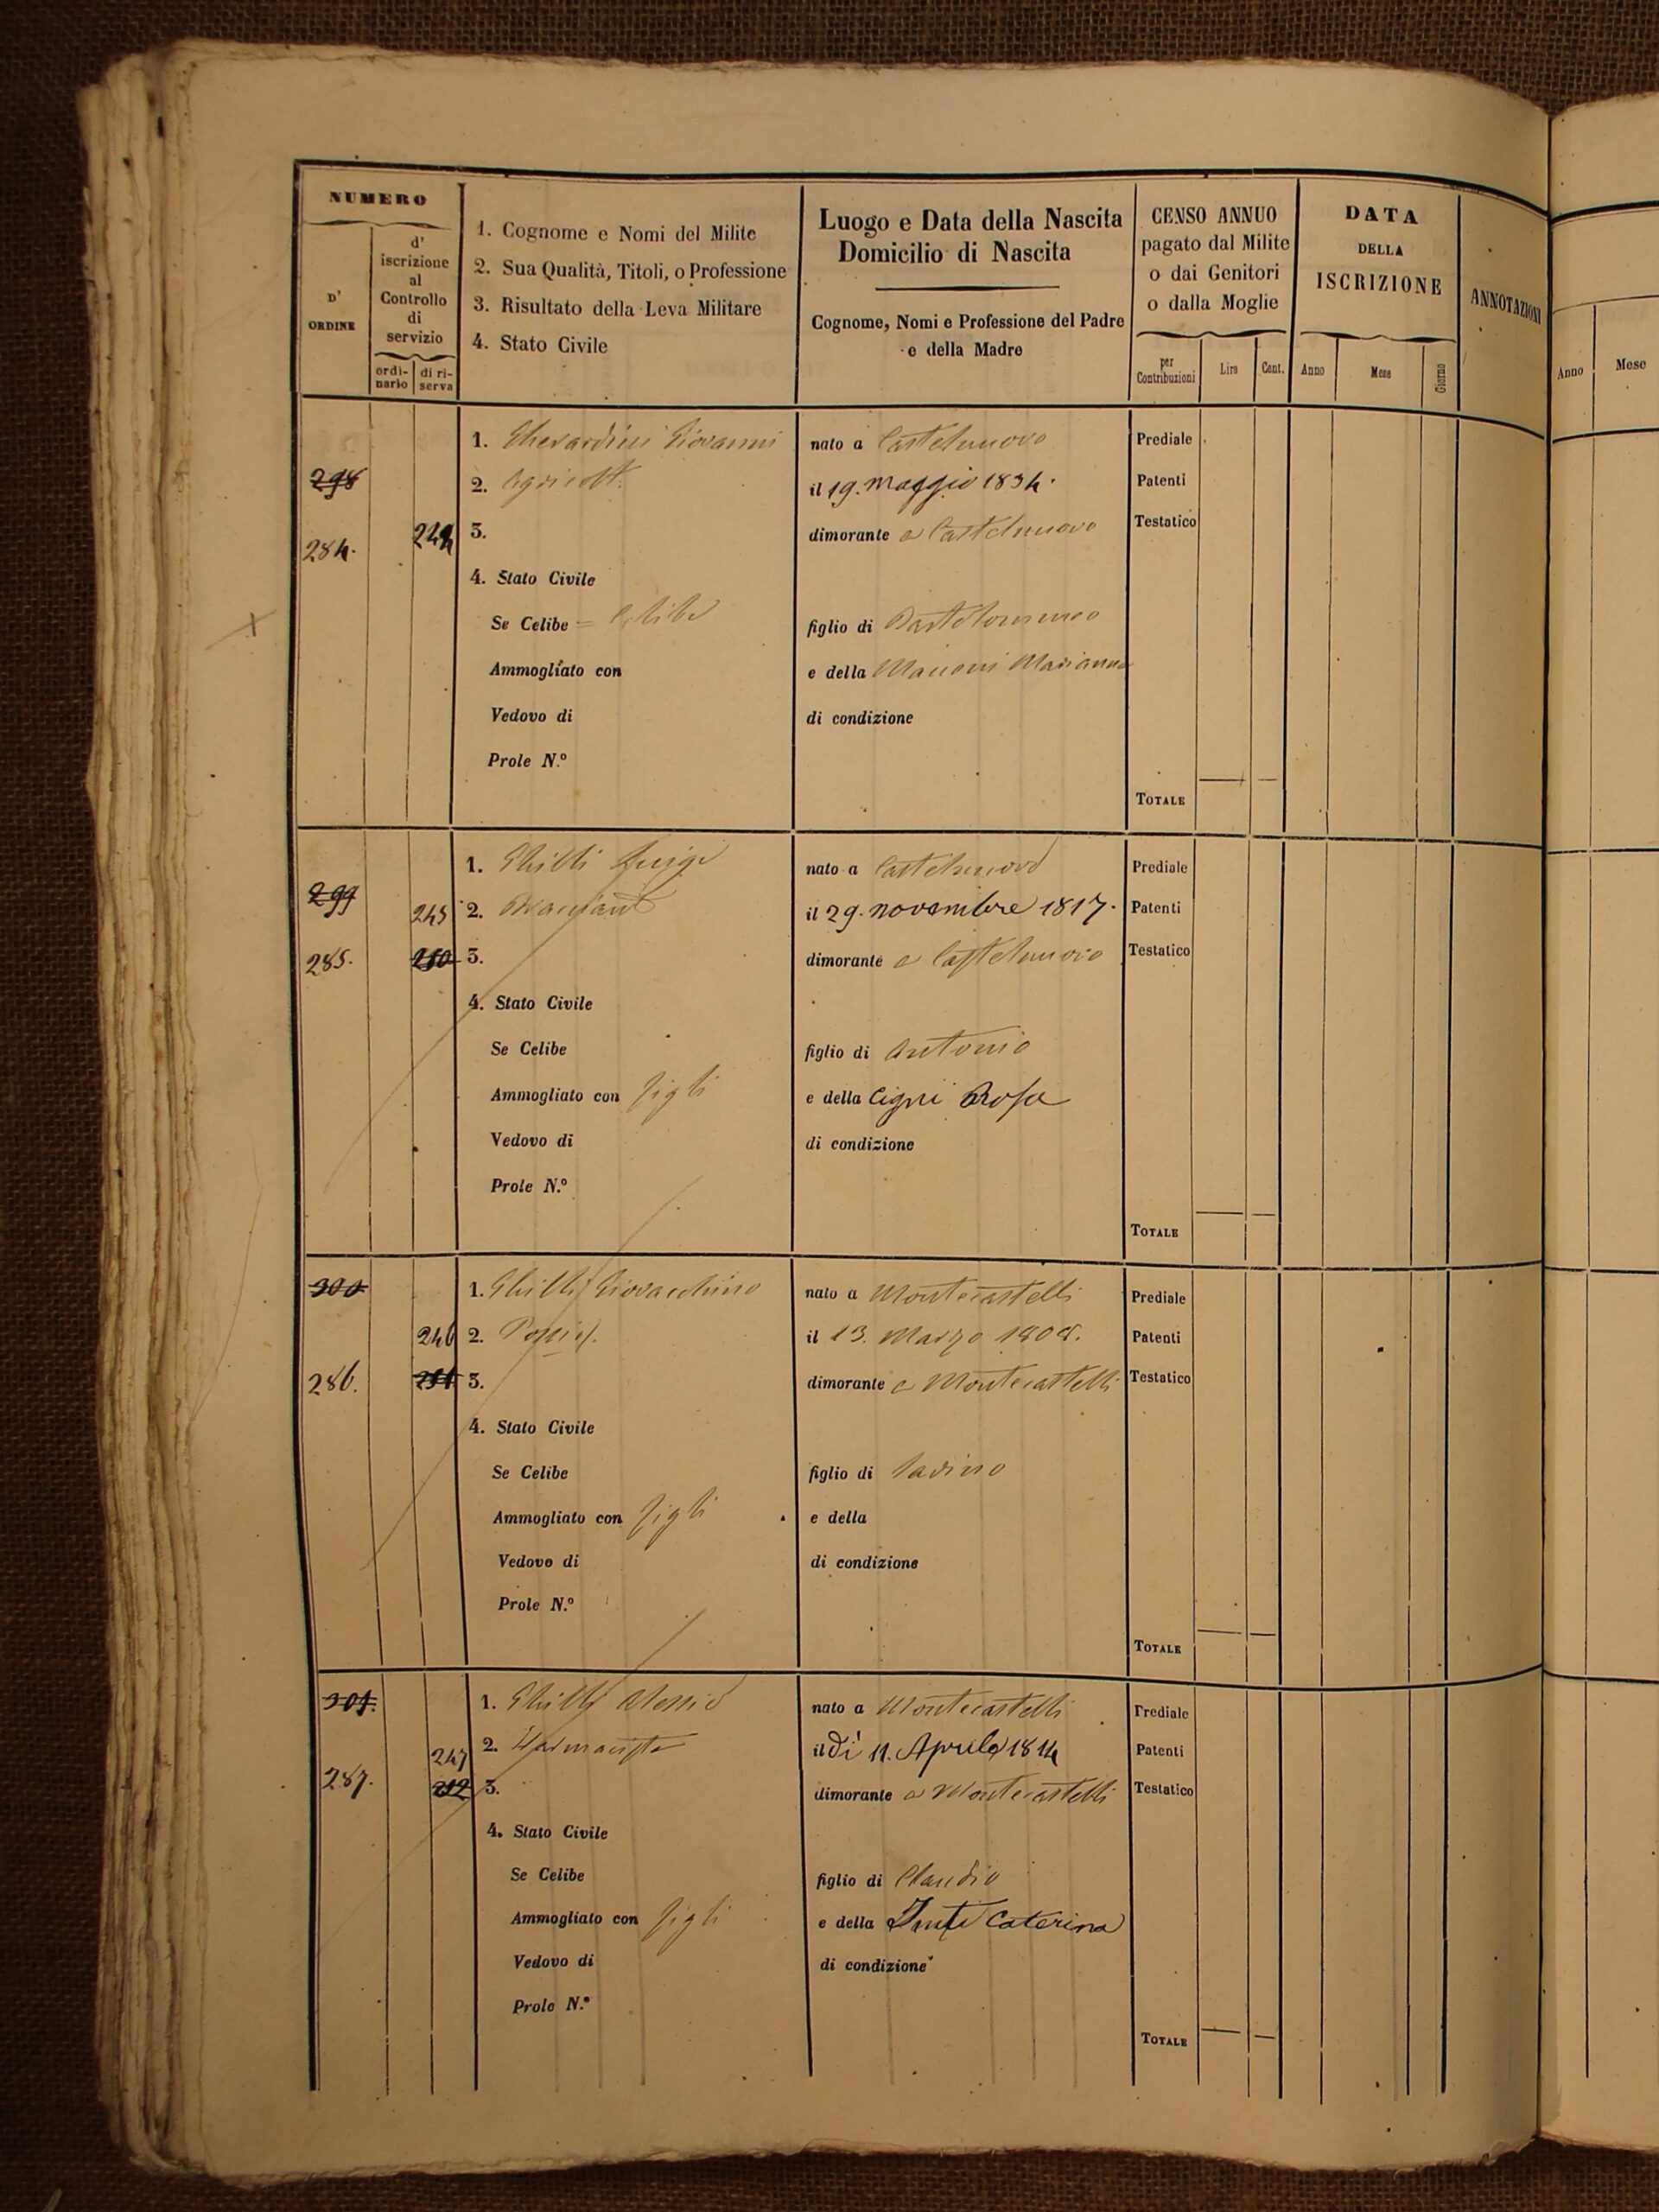 NUMERO
D' ORDINE
d' iscrizione al Controllo di servizio
ordinario
di riserva
1. Cognome e Nomi del Milite
2. Sua Qualità, Titoli, o Professione
3. Risultato della Leva Militare
4. Stato Civile
Luogo e Data della Nascita
Domicilio di Nascita
Cognome, Nomi e Professione del Padre
e della Madre
CENSO ANNUO
pagato dal Milite
o dai Genitori
o dalla Moglie
per Contribuzioni
Lire
Cent.
DATA
DELLA
ISCRIZIONE
Anno
Mese
Giorno
ANNOTAZIONI
Anno
Mese
298
284.
1. Gherardini Giovanni
2. Agricolt.
3.
4. Stato Civile
Se Celibe = Celibe
Ammogliato con
Vedovo di
Prole N.º
nato a Castelnuovo
il 19. Maggio 1834.
dimorante a Castelnuovo
figlio di Bartolommeo
e della Marianna
di condizione
Prediale
Patenti
Testatico
TOTALE
299
285.
245
250
1. Ghilli Luigi
2.
3.
4. Stato Civile
Se Celibe
Ammogliato con figli
Vedovo di
Prole N.º
nato a Castelnuovo
il 29. novembre 1817.
dimorante a Castelnuovo
figlio di Antonio
e della Cigni Rosa
di condizione
Prediale
Patenti
Testatico
TOTALE
300
286.
246
251
1. Ghilli Giovacchino
2. Possid.
3.
4. Stato Civile
Se Celibe
Ammogliato con figli
Vedovo di
Prole N.º
nato a Montecastelli
il 13. Marzo 1808.
dimorante a Montecastelli
figlio di
e della
di condizione
Prediale
Patenti
Testatico
TOTALE
301.
287.
247
252
1. Ghilli Alessio
2. Farmacista
3.
4. Stato Civile
Se Celibe
Ammogliato con figli
Vedovo di
Prole N.º
nato a Montecastelli
il dì 11. Aprile 1814
dimorante a Montecastelli
figlio di Claudio
e della Caterina
di condizione
Prediale
Patenti
Testatico
TOTALE